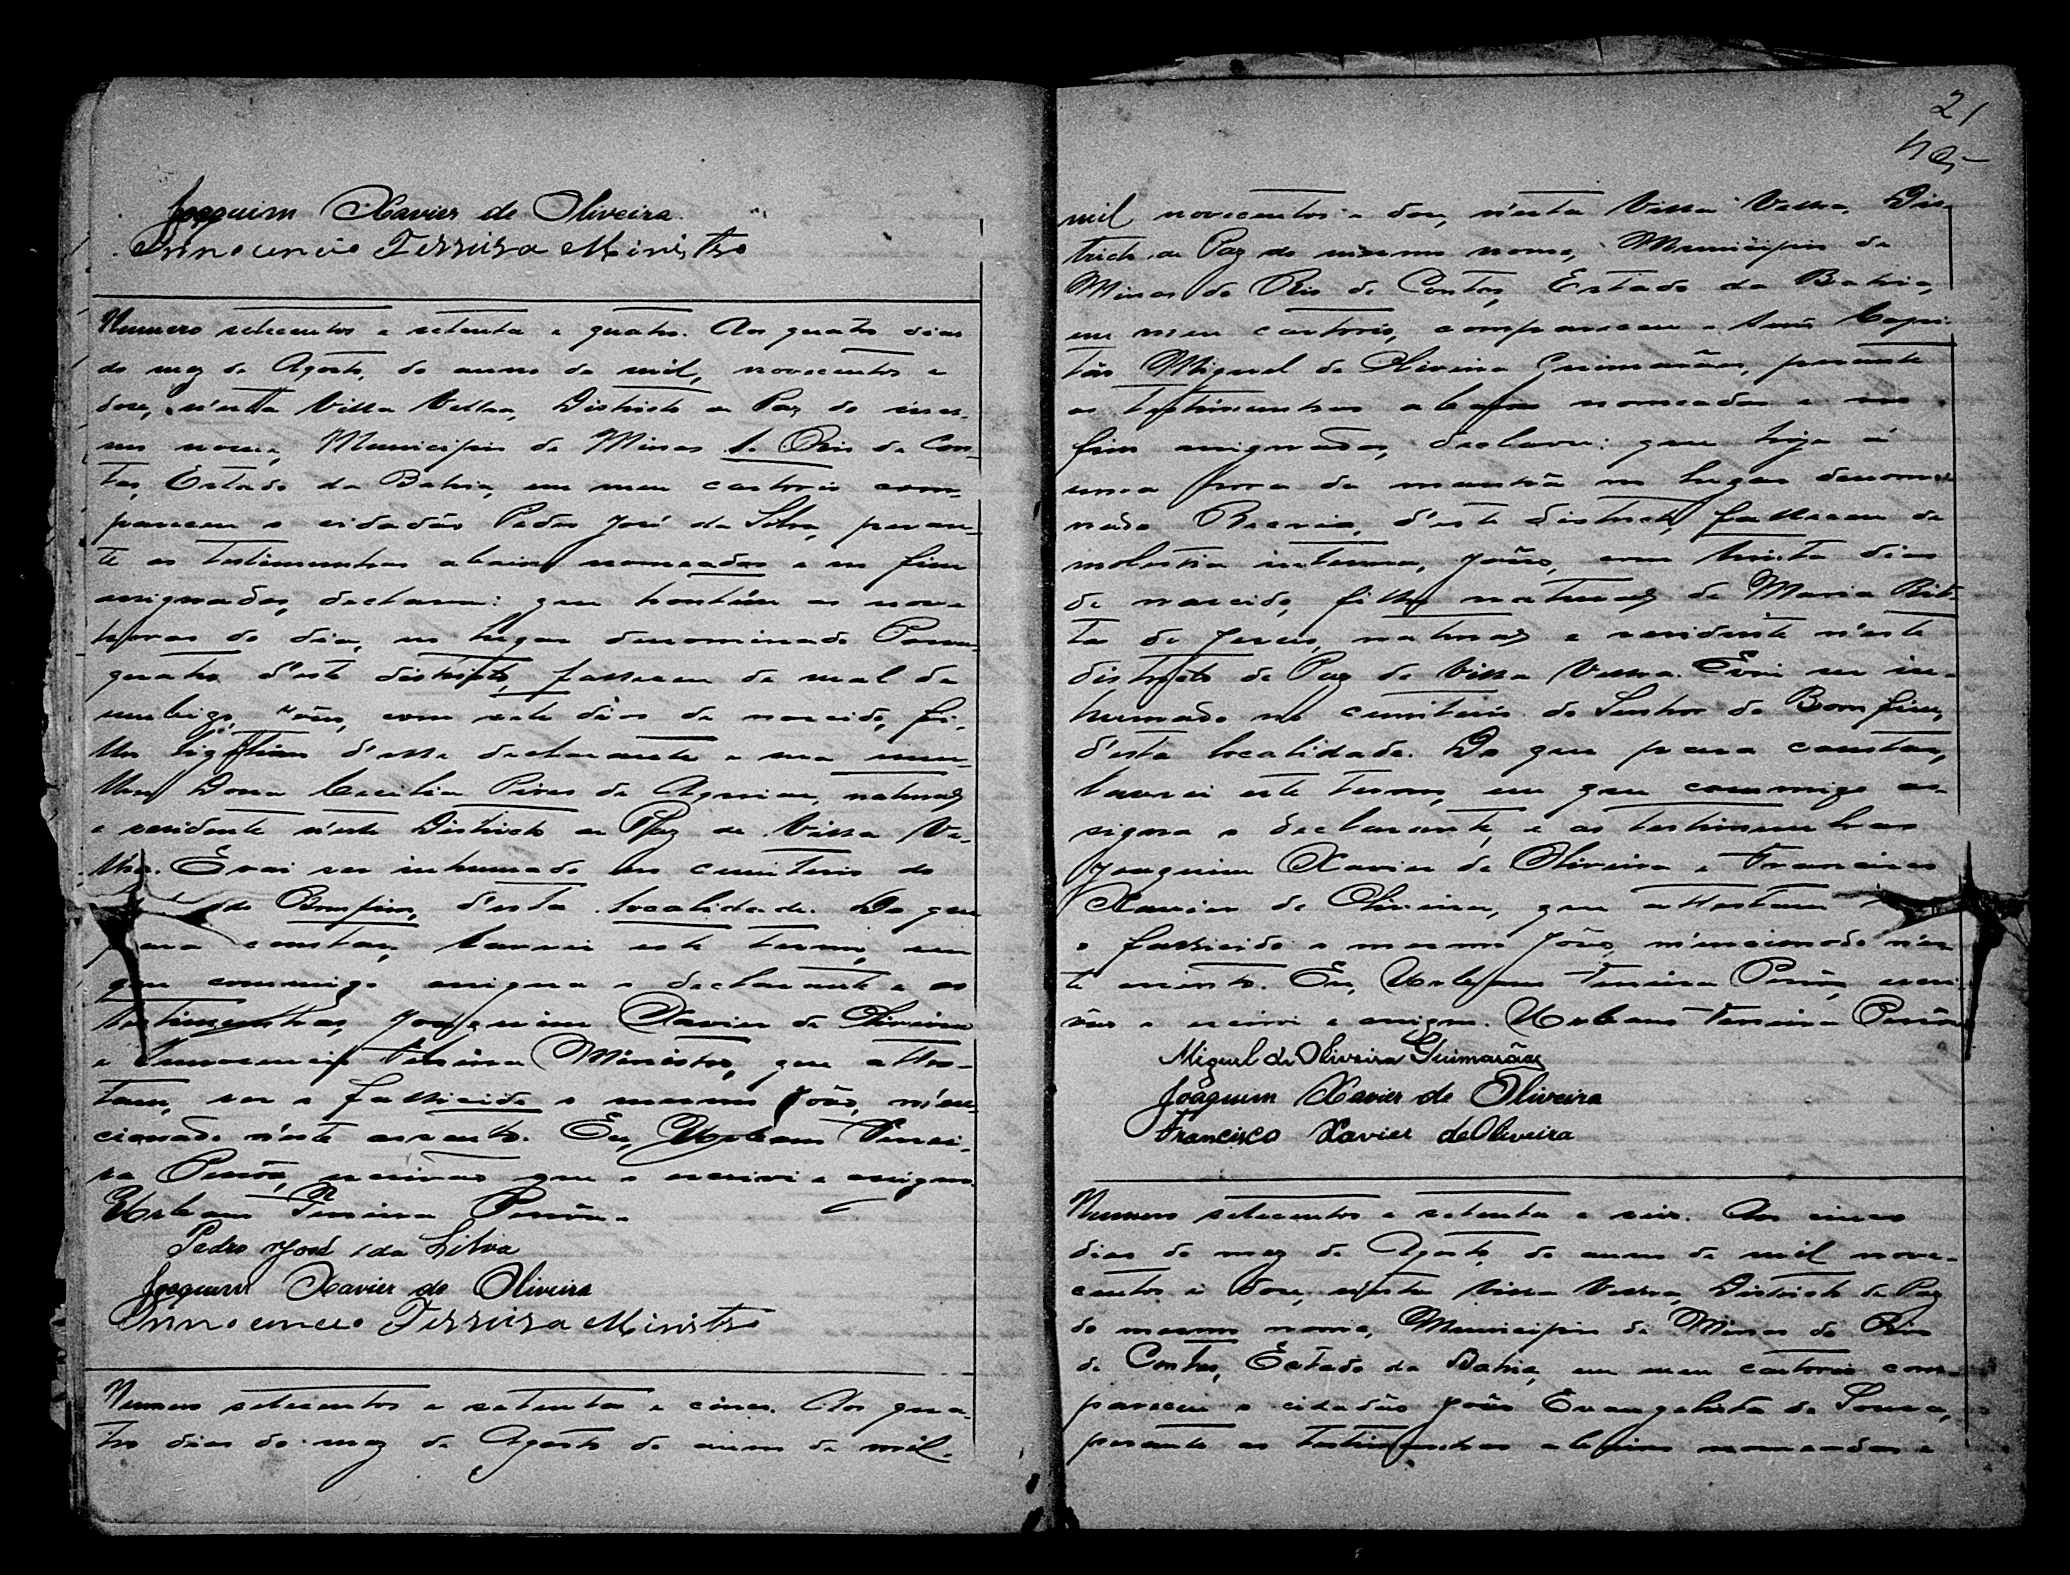 Joaquim Xavier de Oliveira
Innocencio Ferreira Ministro
Numero setecentos e setenta e quatro. Aos quatro dias
do mez de Agosto, do anno de mil, novecentos e
doze, n'esta Villa Velha, Districto de Paz do mes-
mo nome, Municipio de Minas do Rio de Con-
tas, Estado da Bahia, em meu cartorio com-
pareceu o cidadão Pedro José da Silva, peran-
te as testimunhas abaixo nomeadas e no fim
assignadas, declarou: que hontem as nove
horas do dia, no lugar denominado
d'este districto, falleceu de mal de
umbigo, João, com sete dias de nascido, fi-
lho ligitimo d'elle declarante e sua mu-
lher Dona Cecilia Pires de Aguiar, natural
e residente n'este Districto de Paz de Villa Ve-
lha. E vai ser inhumado no cemiterio do
do Bomfim, d'esta localidade. Do que
para constar, lavrei este termo, em
que commigo assigna o declarante e as
testimunhas, Joaquim Xavier de Oliveira
e Innocencio Ferreira Ministro, que attes-
tam, ser o fallecido o mesmo João, men-
cionado n'este assento. Eu, Ferrei-
ra escrivão que o escrevi e assigno.
Ferreira
Pedro José da Silva
Joaquim Xavier de Oliveira
Innocencio Ferreira Ministro
Numero setecentos e setenta e cinco. Aos qua-
tro dias do mez de Agosto do anno de mil
21
mil novecentos e doze, n'esta Villa Velha, Dis-
tricto de Paz do mesmo nome, Municipio de
Minas do Rio de Contas, Estado da Bahia,
em meu cartorio, compareceu o Capi-
tão Miguel de Oliveira Guimarães, perante
as testimunhas abaixo nomeadas e no
fim assignadas, declarou: que hoje á
uma hora da manhã no lugar denomi-
nado d'este districto, falleceu de
molestia interna, João, com trinta dias
de nascido, filho natural de Maria Rit-
ta de Jesus, natural e residente n'este
districto de Paz de Villa Velha. E vai ser in-
humado no cemiterio do Senhor do Bomfim,
d'esta localidade. Do que para constar,
lavrei este termo, em que commigo as-
signa o declarante, e as testimunhas
Joaquim Xavier de Oliveira e Francisco
Xavier de Oliveira, que attestam
o fallecido o mesmo João, mencionado n'es-
te assento. Eu, Ferreira escri-
vão o escrevi e assigno. Ferreira
Miguel de Oliveira Guimarães
Joaquim Xavier de Oliveira
Francisco Xavier de Oliveira
Numero setecentos e setenta e seis. Aos cinco
dias do mez de Agosto, do anno de mil nove-
centos e doze, n'esta Villa Velha, Districto de Paz
do mesmo nome, Municipio de Minas do Rio
de Contas, Estado da Bahia, em meu cartorio com-
pareceu o cidadão João Evangelista de Souza,
perante as testimunhas abaixo nomeadas e